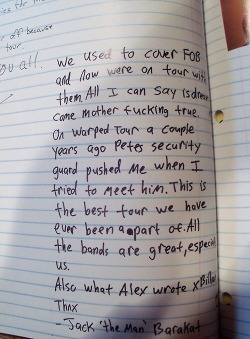 off because
tour.
you all.
we used to cover FOB
and now were on tour with
them. All I can say is dreams
came mother fucking true.
On Warped Tour a couple
years ago Petes security
guard pushed me when I
tried to meet him. This is
the best tour we have
ever been a part of. All
the bands are great, especial
us.
Also what Alex wrote x Billion
Thnx
- Jack 'the Man' Barakat